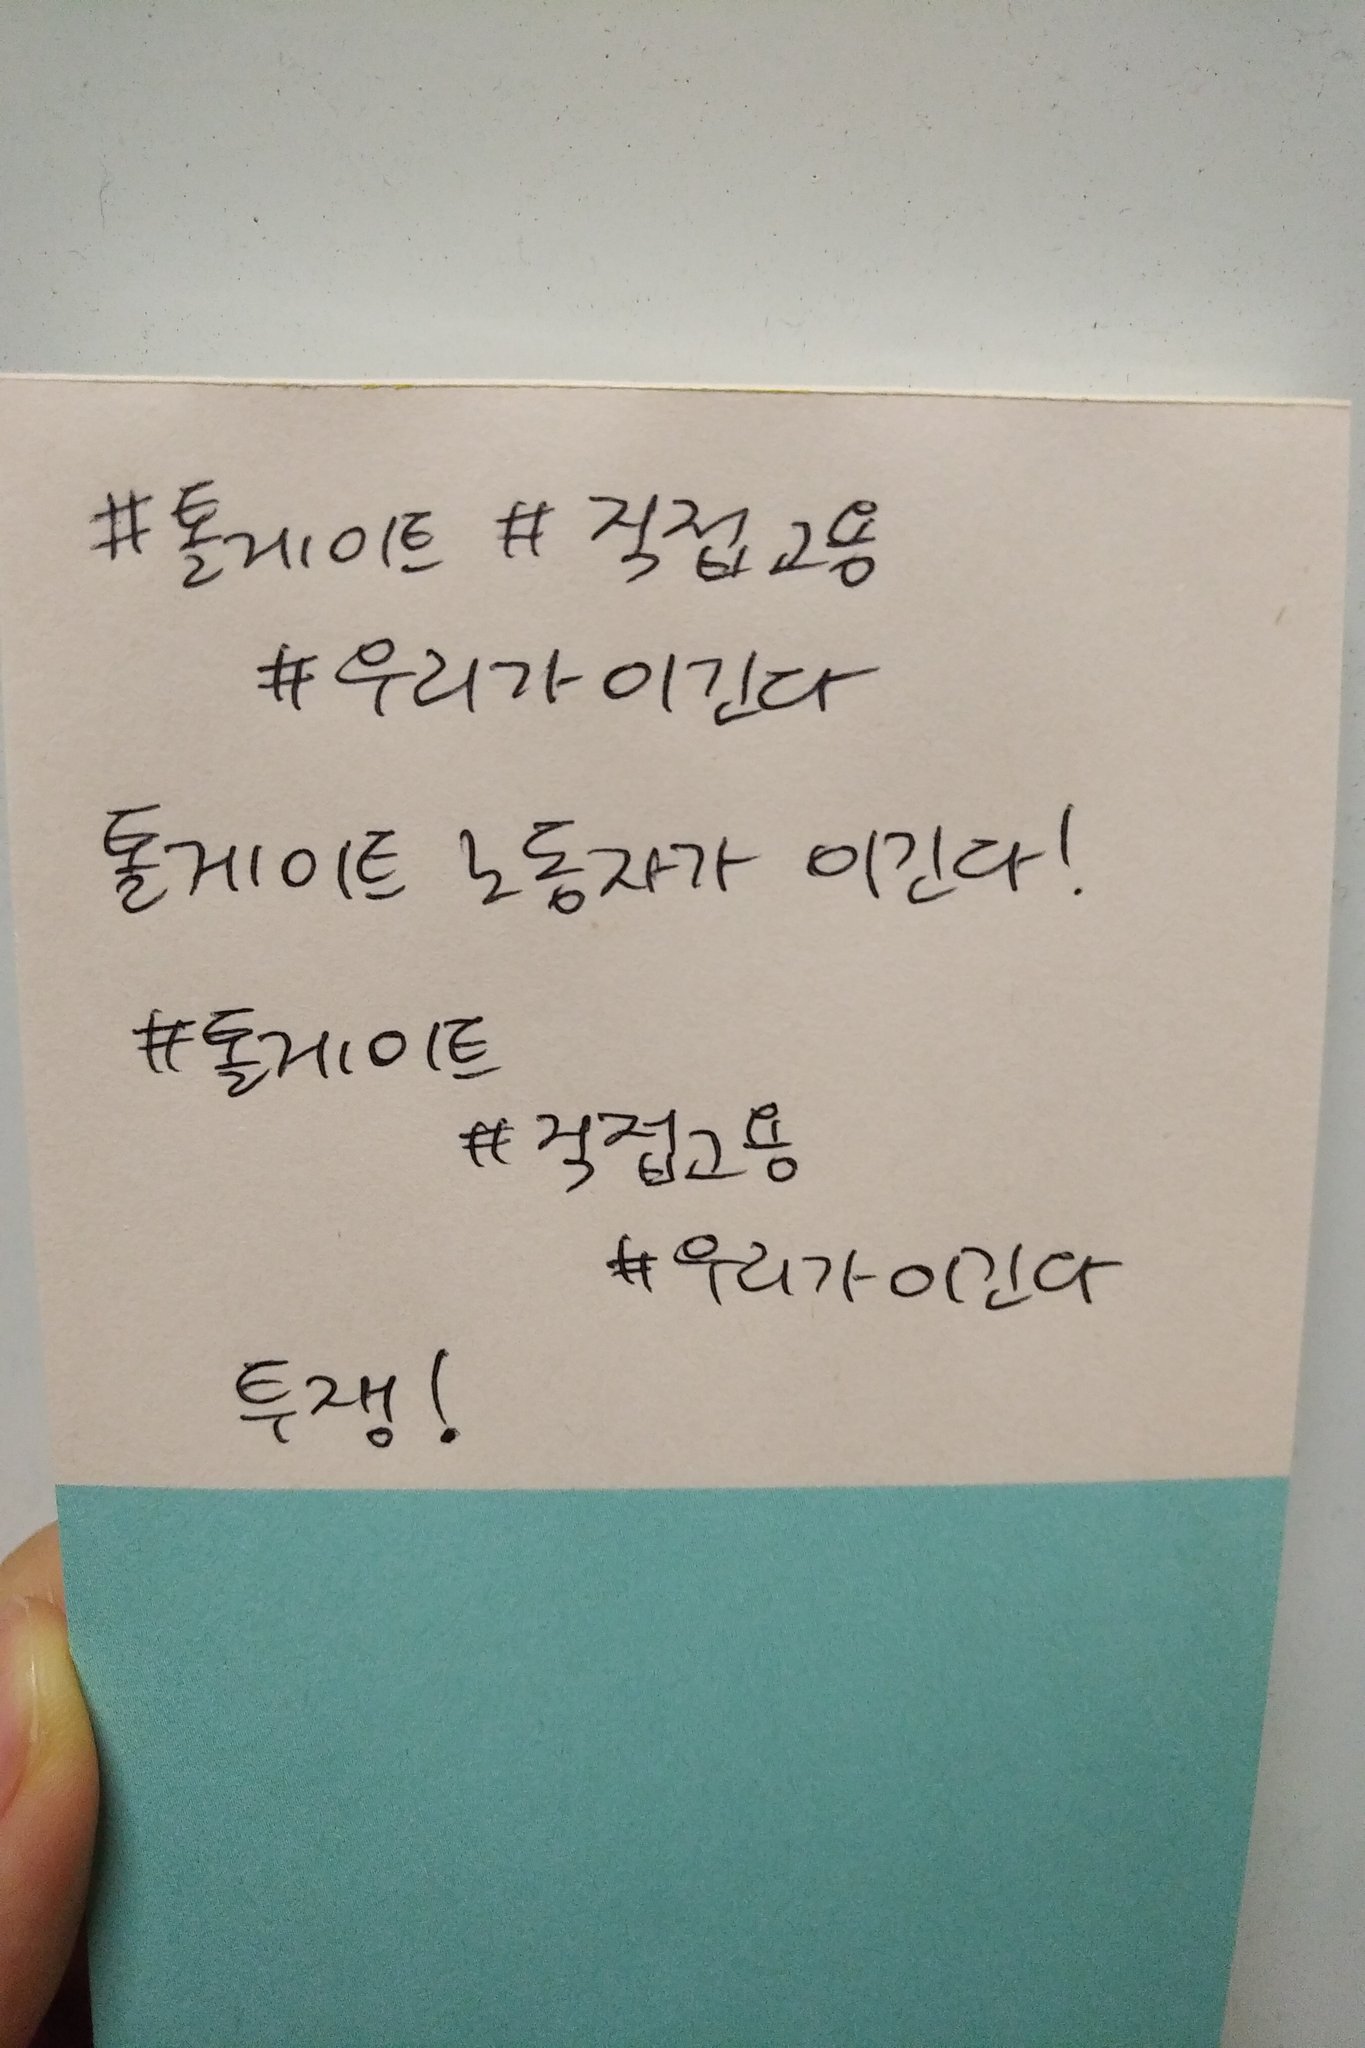 #톨게이트 #직접고용
#우리가이긴다
톨게이트 노동자가 이긴다!
#톨게이트
#직접고용
#우리가이긴다
투쟁!